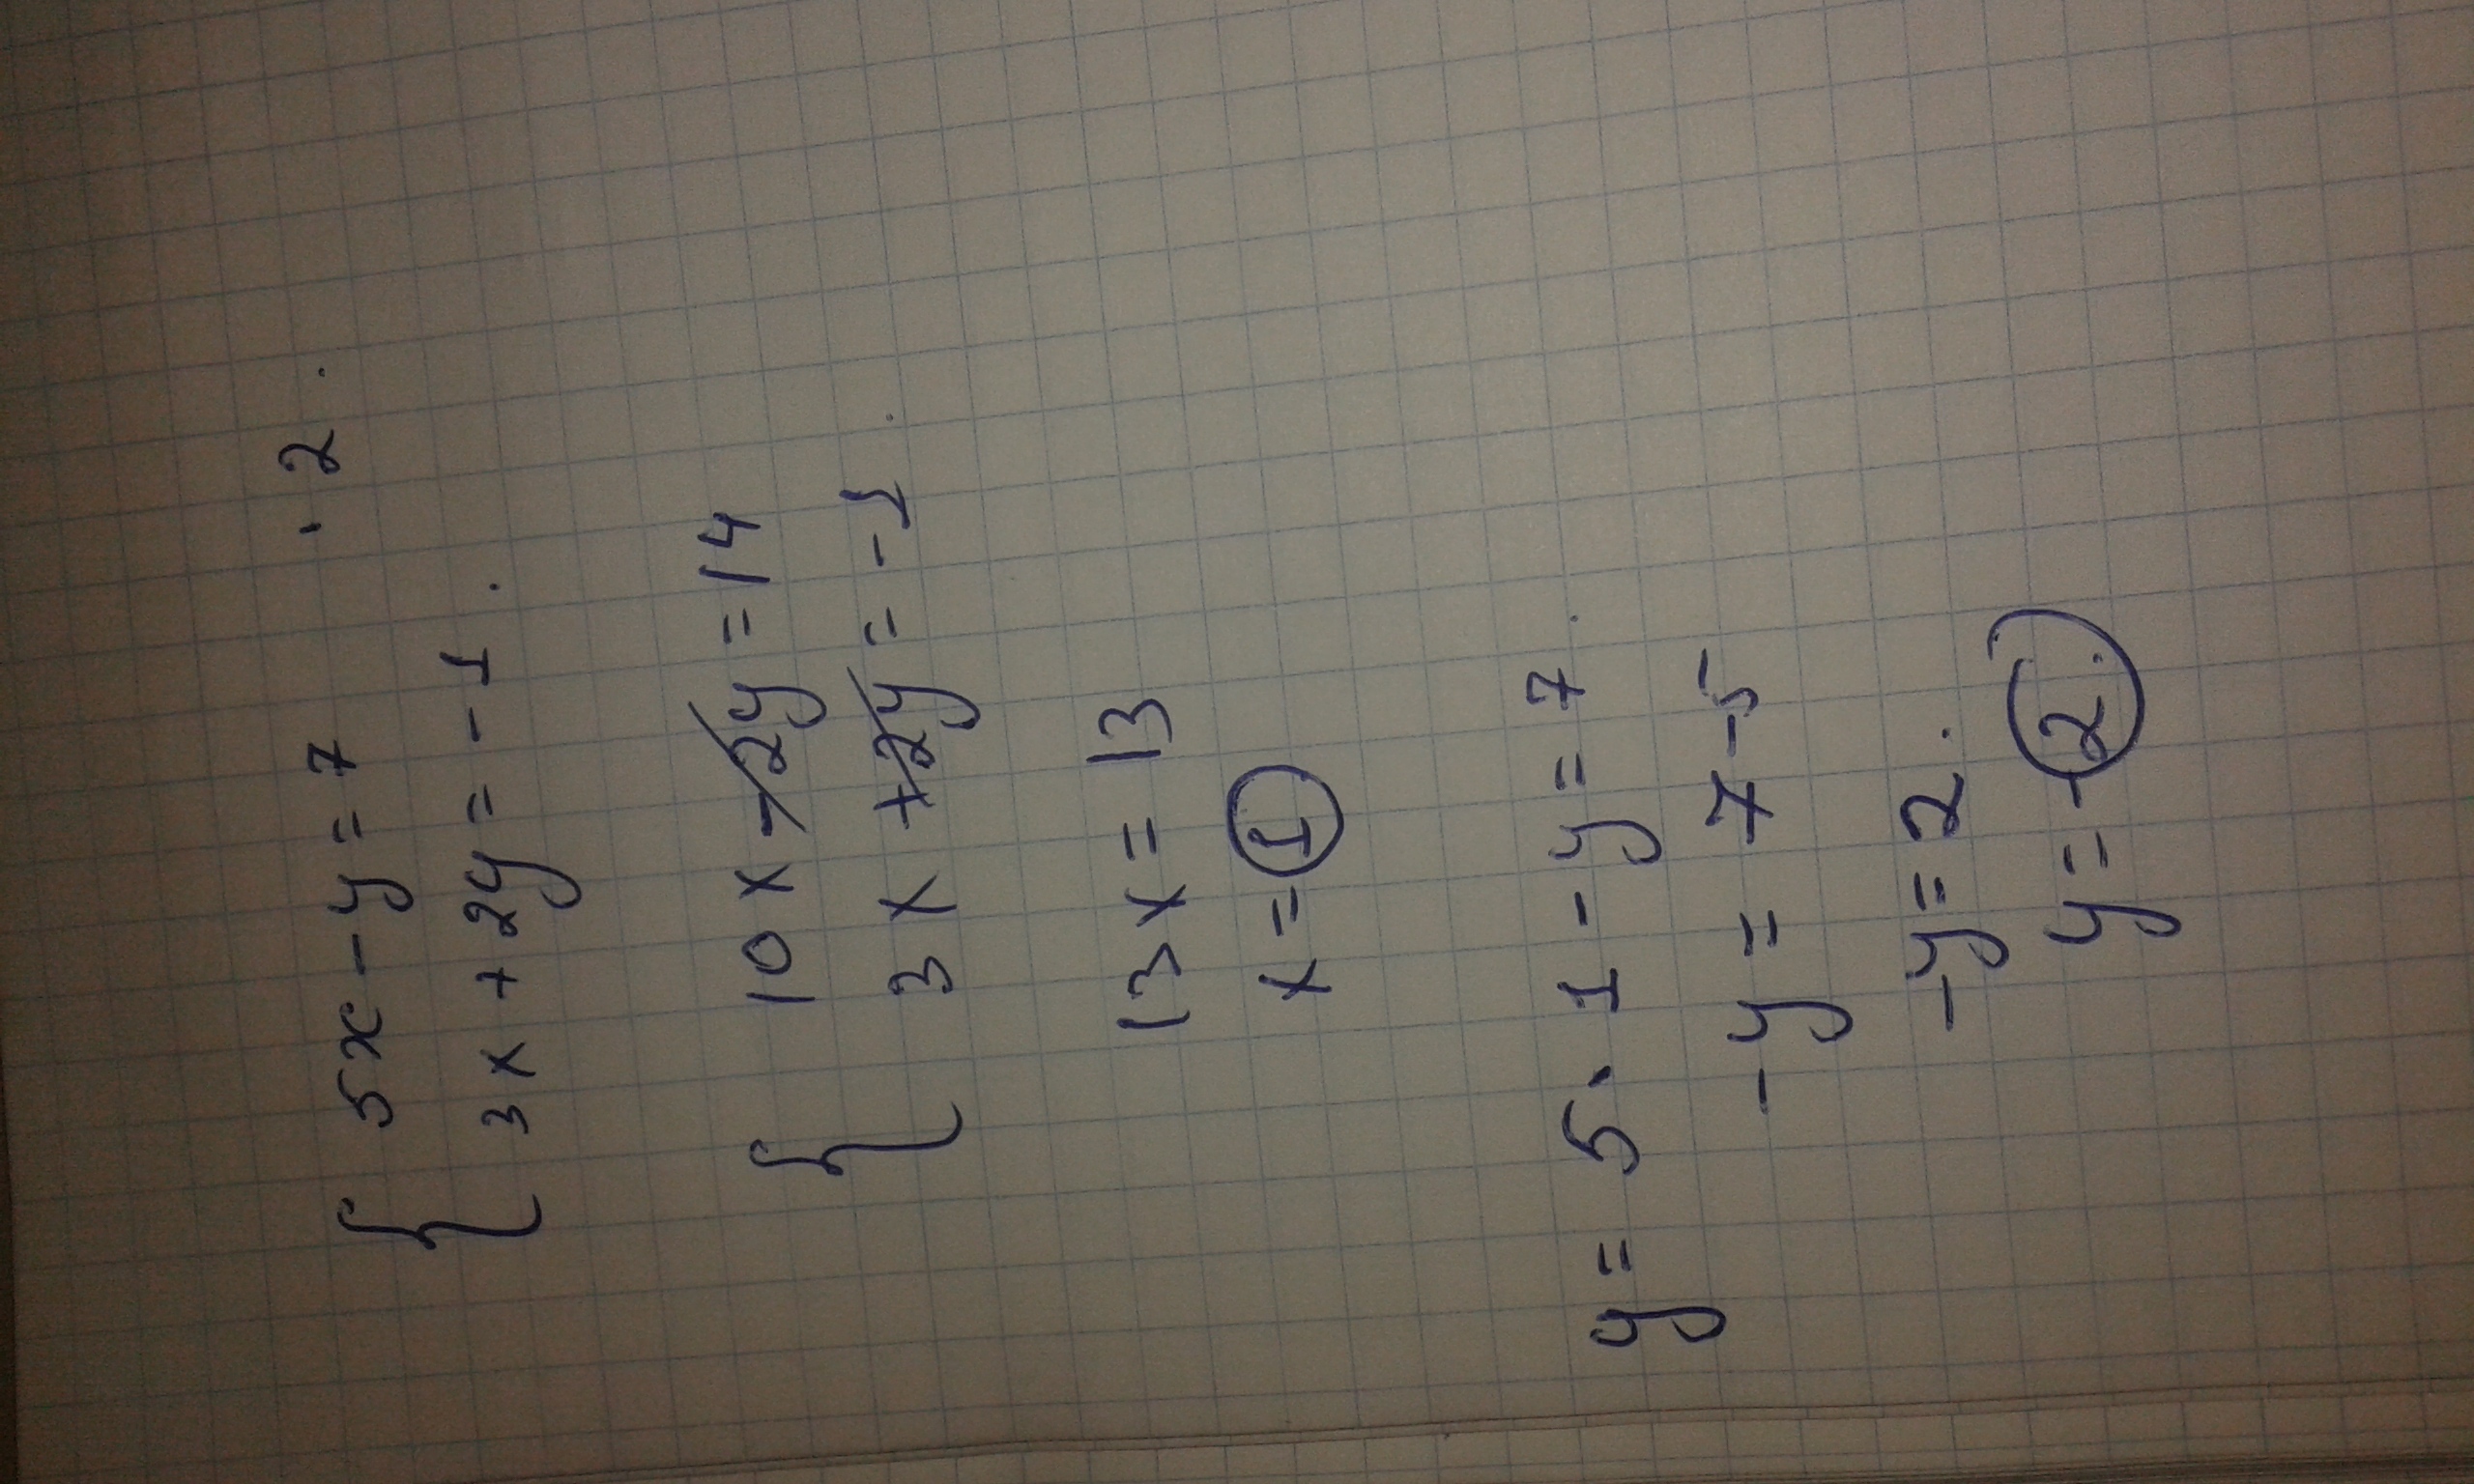 { 5x - y = 7 · 2
3x + 2y = -1
{ 10x - 2y = 14
3x + 2y = -1
13x = 13
x = 1
y = 5 · 1 - y = 7
-y = 7 - 5
-y = 2.
y = -2.